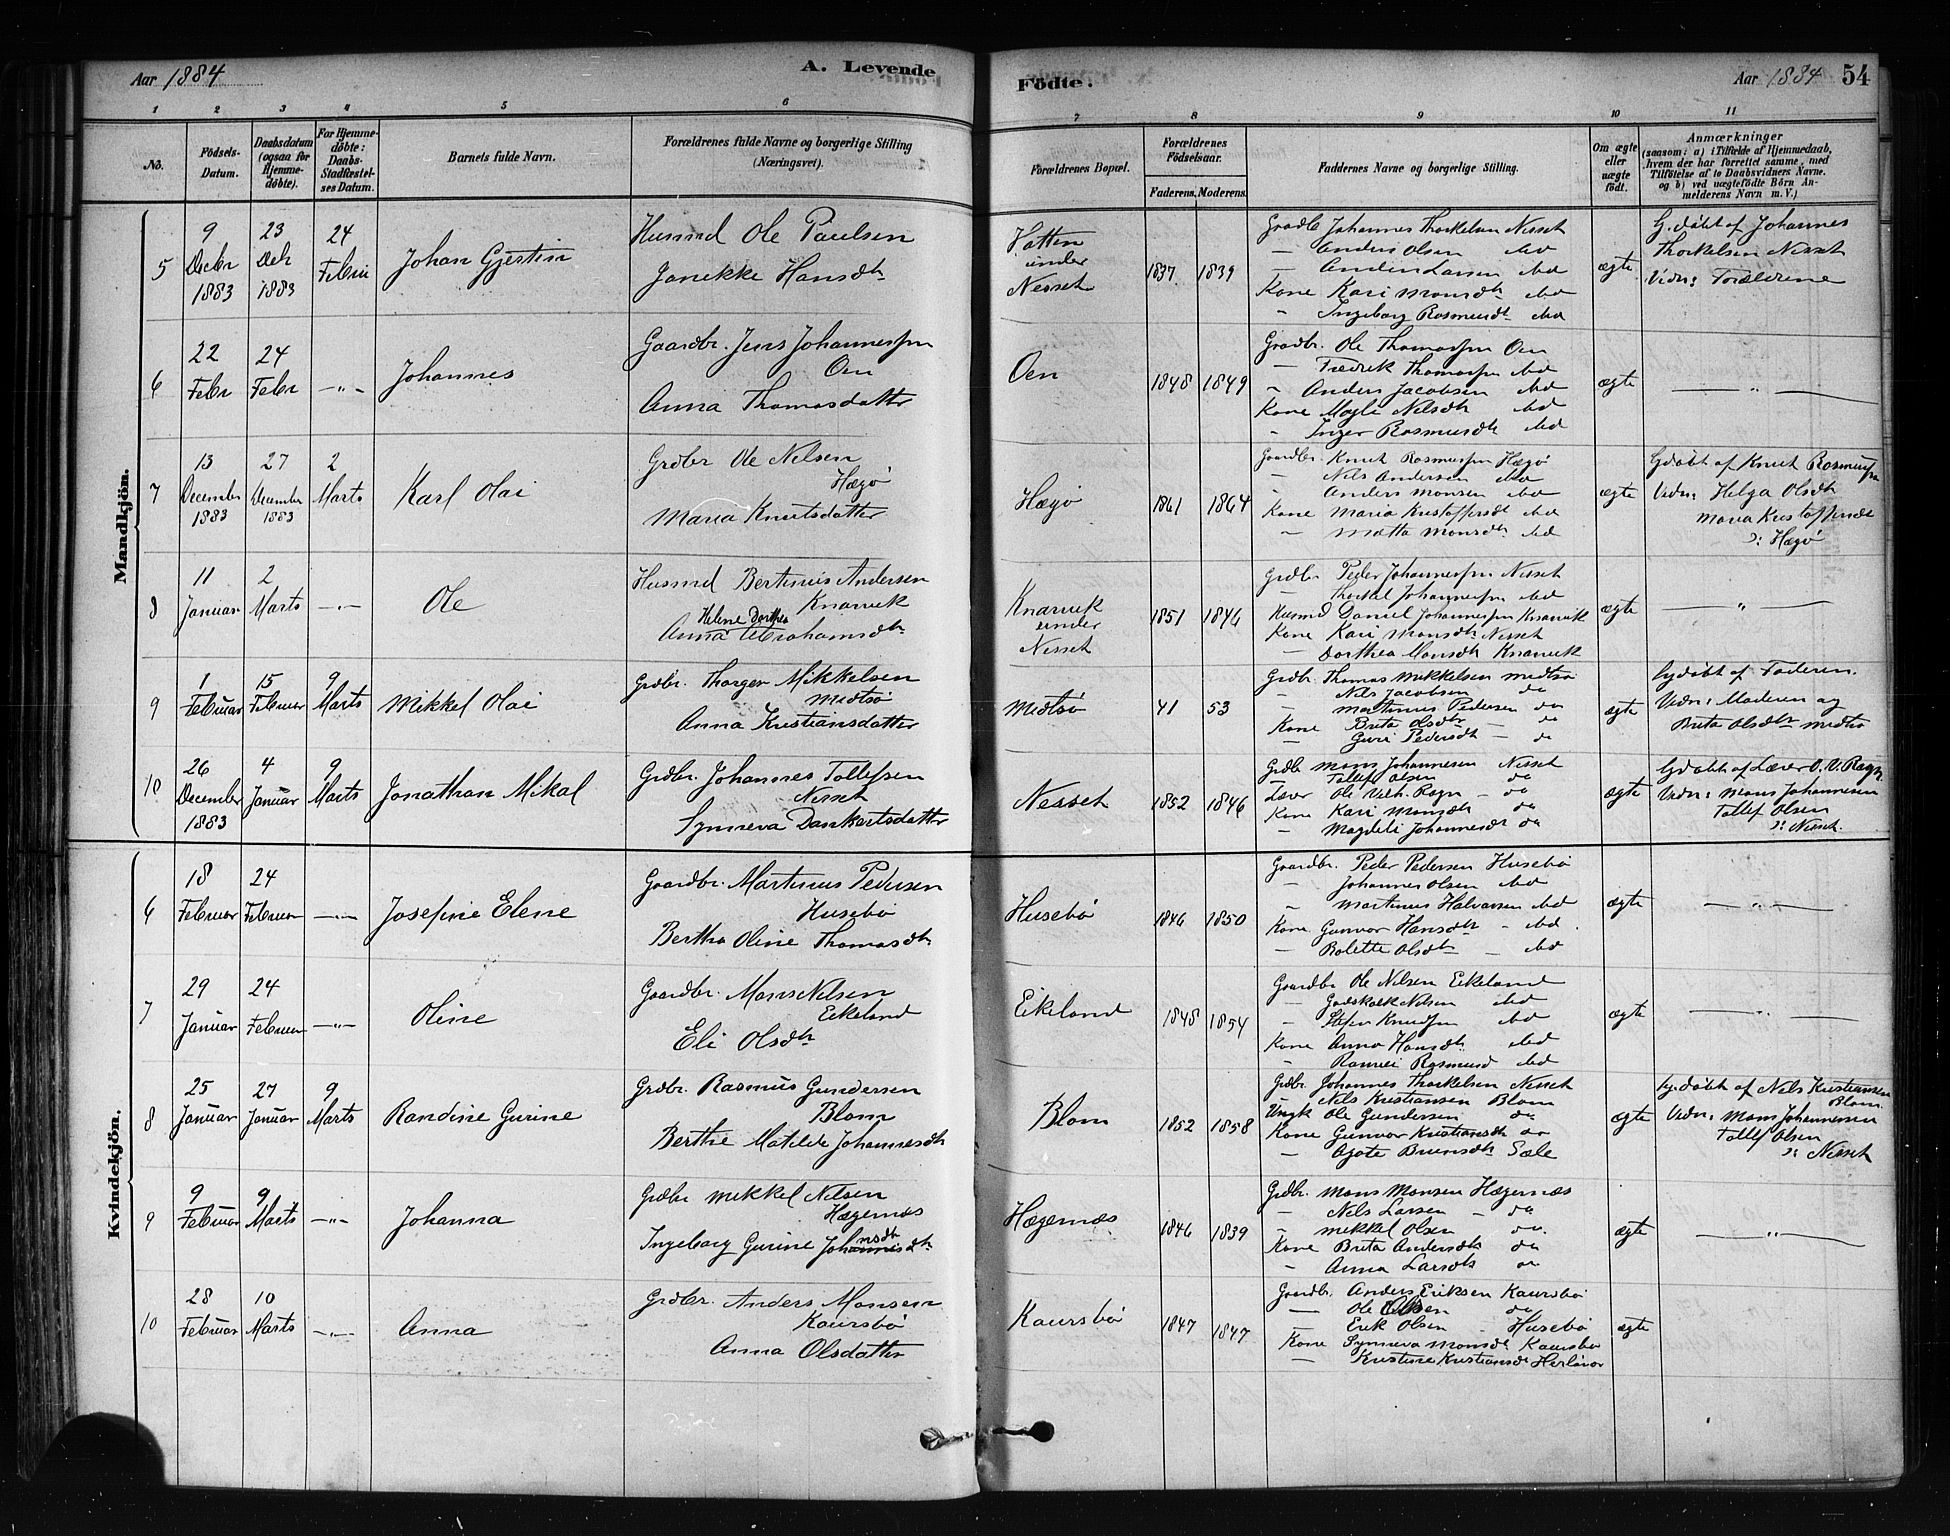 Aar 1884 A. Levende Födte. Aar 1884 54
1 2 3 4 5 6 7 8 9 10 11
No. Födsels-Datum. Daabsdatum (ogsaa for Hjemme-döbte). For Hjemme-döbte: Daabs-Stadfæstel-ses Datum. Barnets fulde Navn. Forældrenes fulde Navne og borgerlige Stilling (Næringsvei). Forældrenes Bopæl. Forældrenes Födselsaar. Faderens. Moderens. Faddernes Navne og borgerlige Stilling. Om ægte eller uægte födt. Anmærkninger (saasom: a) i Tilfælde af Hjemmedaab, hvem der har forrettet samme, med Tilföielse af to Daabsvidners Navne. og b) ved uægtefödte Börn An-melderens Navn m. V.)
Mandkjön.
5 9 Decbr 1883 23 Dcb 1883 24 Febru Johan Gjestin
Husmd Ole Paulsen
Janekke Hansdtr
Hatten under Nesset 1837 1839
Grdb Johannes Thorkelsen Nesset
— Anders Olsen ibd
— Anders Larsen ibd
Kone Kari Monsdtr ibd
" Ingeborg Rasmusdtr ibd
ægte
Hj.döbt af Johannes
Thorkelsen Nesset
Vidn: Forældrene
6 22 Febr 24 Febr —"— Johannes
Gaardbr. Jens Johannessen
Oen
Anna Thomasdatter
Oen 1848 1849
Grdbr. Ole Thomassen Oen
— Fredrik Thomassen ibd
" Anders Jacobsen ibd
Kone Magli Nilsdtr ibd
" Inger Rasmusdtr ibd
ægte — " —
7 13 December 1883 27 December 1883 2 Marts Karl Olai
Grdbr Ole Nelsen
Hægö
Maria Knutsdatter
Hægö 1861 1864
Gaardbr. Knut Rasmussen Hægö
— Nils Andersen ibd
— Anders Monsen ibd
Kone Maria Kristoffersdtr ibd
" Mætta Monsdtr ibd
ægte
Hjdöbt af Knut Rasmussen
Vidn: Helga Olsdtr
Maria Kristoffersdtr
Hægö
8 11 Januar 2 Marts —"— Ole
Husmd Bertinius Andersen
Knarvik
Helene Dorthea
Anna Abrahamsdtr
Knarvik under Nesset 1851 1846
Grdbr Peder Johannessen Nesset
— Thorkel Johannessen ibd
Husmd Daniel Johannessen Knarvik
Kone Kari Monsdtr Nesset
— Dorthea Monsdtr Knarvik
ægte — " —
9 1 Februar 15 Februar 9 Marts Mikkel Olai
Grdbr. Thorger Mikkelsen
Midtsö
Anna Kristiansdatter
Midtsö 41 53
Grdbr. Thomas Mikkelsen Midtsö
— Nils Jacobsen do
— Martinus Pedersen do
Kone Brita Olsdtr — do
— Guri Pedersdtr — do
ægte
Hjdöbt af Faderen.
Vidn: Moderen og
Brita Olsdtr Midtsö
10 26 December 1883 4 Januar 9 Marts Jonathan Mikal
Grdbr. Johannes Tollefsen
Nesset
Synneva Dankertsdatter
Nesset 1852 1846
Grdb Mons Johannesen Nesset
Tollef Olsen do
Lærer Ole Vilh. Ragn — do
Kone Kari Monsdtr do
" Magdeli Johannesdtr do
ægte
Hjdöbt af Lærer O. V. Ragn
Vidn: Mons Johannesen
Tollef Olsen
Nesset.
Kvindekjön.
6 18 Februar 24 Februar —"— Josefine Elene
Gaardbr. Martinus Pedersen
Husebö
Bertha Oline Thomasdtr
Husebö 1846 1850
Gaardbr. Peder Pedersen Husebö
— Johannes Olsen ibd
— Martinus Halvorsen ibd
Kone Gunvor Hansdtr — ibd.
— Rolette Olsdtr — ibd
ægte — " —
7 29 Januar 24 Februar —"— Oline
Gaardbr. Mons Nelsen
Eikeland
Eli Olsdtr
Eikeland 1848 1854
Gaardbr Ole Nelsen Eikeland
— Godskalk Nelsen ibd
— Stefen Knudsen ibd
Kone Anna Hansdtr. ibd
" Rannei Rasmusd ibd
ægte — " —
8 25 Januar 27 Januar 9 Marts Randine Gurine
Grdbr. Rasmus Gundersen
Blom
Berthe Matilde Johannesdtr
Blom 1852 1858
Grdbr. Johannes Thorkelsen Nesset
" Nils Kristiansen Blom
Ungk Ole Gundersen do
Kone Gunvor Kristiansdtr do
— Agate Brunsdtr Sæle
ægte
Hj.döbt af Nels Kristiansen
Blom.
Vidn: Mons Johannesen
Tollef Olsen
Nesset
9 9 Februar 9 Marts —"— Johanna
Grdbr Mikkel Nelsen
Hægernæs
Ingeborg Gurine Johannisdtr
nsdtr
Hægernæs 1846 1839
Grdbr. Mons Monsen Hægernæs
— Nils Larsen — do
" Mikkel Olsen do.
Kone Brita Andersdtr do
— Anna Larsdtr do
ægte — " —
10 28 Februar 10 Marts —"— Anna
Grdbr. Anders Monsen
Kaursbö
Anna Olsdatter
Kaursbö 1847 1847
Gaardbr. Anders Eriksen Kaursbö
— Ole Olsen do
— Erik Olsen — Husebö
Kone Synneva Monsdtr Kaursbö
— Kristine Kristiansd Herlövær
ægte